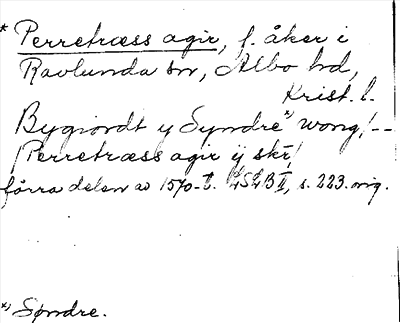 * Perretræss agir, f. åker i
Ravlunda sn, Albo hd,
Krist. l.
Bygiordt y Syndre*) wong, --
Perretræss agir ij skr,
förra delen av 1570-t. LSLB II, s. 223. orig.
*) Søndre.